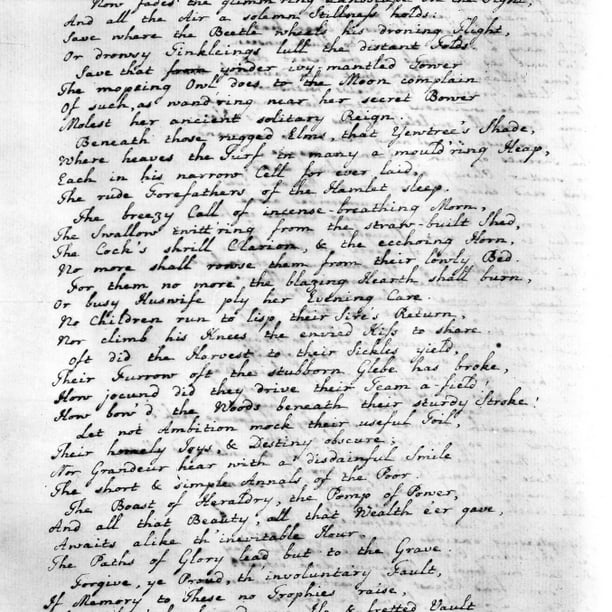 Now fades the glimm'ring Landscape on the Sight,
And all the Air a solemn Stillness holds;
Save where the Beetle wheels his droning Flight,
Or drowsy Tinkleings lull the distant Folds.
Save that from yonder ivy-mantled Tower
The mopeing Owl does to the Moon complain
Of such, as wand'ring near her secret Bower
Molest her ancient solitary Reign.
Beneath those rugged Elms, that Yewtree's Shade,
Where heaves the Turf in many a mould'ring Heap,
Each in his narrow Cell for ever laid,
The rude Forefathers of the Hamlet sleep.
The breezy Call of incense-breathing Morn,
The Swallow twitt'ring from the straw-built Shed,
The Cock's shrill Clarion, & the ecchoing Horn,
No more shall rowse them from their lowly Bed.
For them no more the blazing Hearth shall burn,
Or busy Huswife ply her Evening Care.
No Children run to lisp their Sire's Return,
Nor climb his Knees the envied Kiss to share.
Oft did the Harvest to their Sickles yield,
Their Furrow oft the stubborn Glebe has broke,
How jocund did they drive their Team a-field!
How bow'd the Woods beneath their sturdy Stroke!
Let not Ambition mock their useful Toil,
Their homely Joys, & Destiny obscure;
Nor Grandeur hear with a disdainful Smile
The short & simple Annals of the Poor.
The Boast of Heraldry, the Pomp of Power,
And all that Beauty, all that Wealth e'er gave,
Awaits alike th' inevitable Hour.
The Paths of Glory lead but to the Grave.
Forgive, ye Proud, th' involuntary Fault,
If Memory to These no Trophies raise,
& fretted Vault